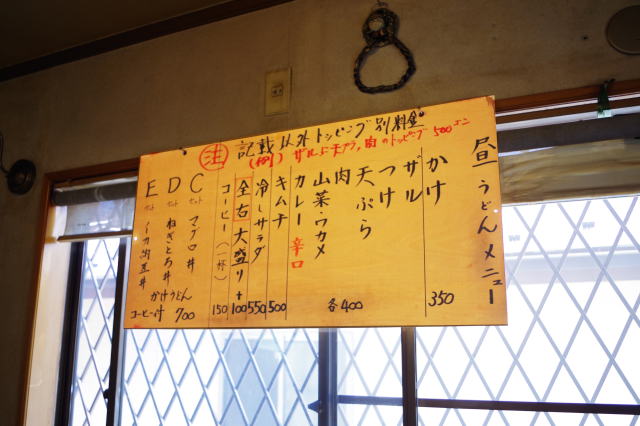 昼うどんメニュー
注 記載以外トッピング別料金
(例) ザルに天プラ,肉のトッピング500エン
かけ 350
ザル
つけ
天ぷら
肉
山菜・ワカメ 各400
カレー 辛口
キムチ 500
冷しサラダ 550
全右大盛り+100
コーヒー(一杯) 150
Cセット マグロ丼
Dセット ねぎとろ丼
Eセット
かけうどん
コーヒー付 700